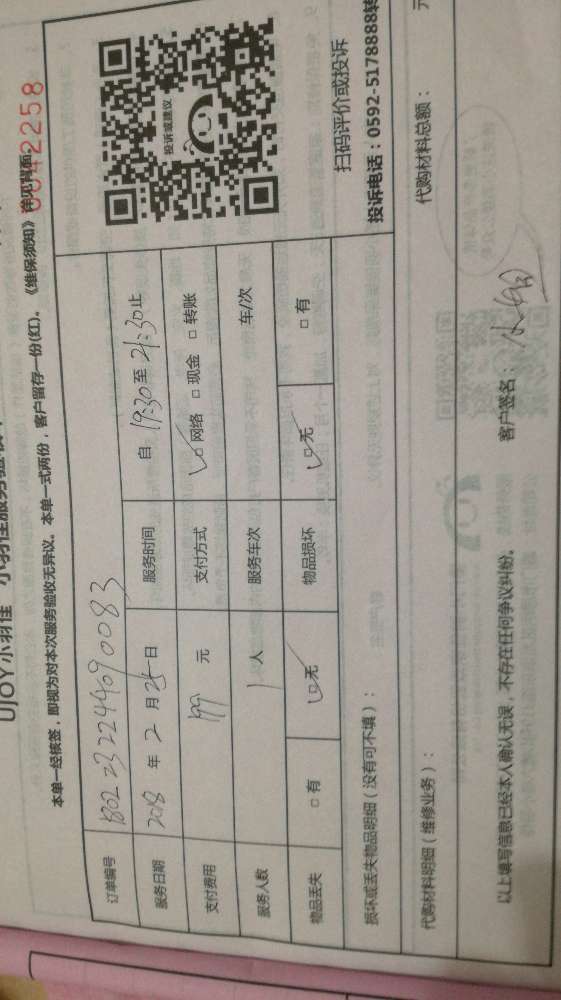 UJOY小羽佳 小羽佳服务验收单
本单一经核签，即视为对本次服务验收无异议。本单一式两份，客户留存一份(红)。《维保须知》详见背面。
0042258
订单编号 180223224409 0083
服务日期 2018 年 2 月 25 日 服务时间 自 19:30 至 21:30 止
支付费用 199 元 支付方式 ☑ 网络 □ 现金 □ 转账
服务人数 1 人 服务车次 车/次
物品丢失 □ 有 ☑ 无 物品损坏 ☑ 无 □ 有
投诉或建议
扫码评价或投诉
投诉电话：0592-5178888转
损坏或丢失物品明细（没有可不填）：
代购材料明细（维修业务）： 代购材料总额： 元
以上填写信息已经本人确认无误，不存在任何争议纠纷。 客户签名：